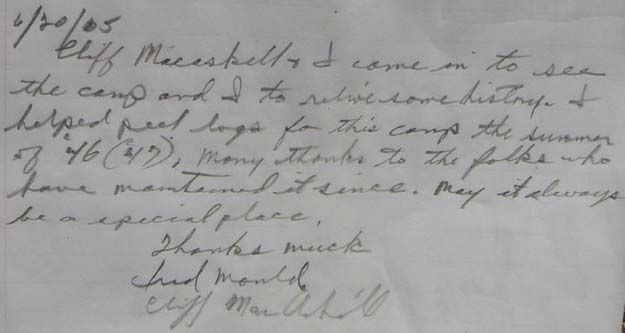 6/20/05
Cliff Macaskill & I came in to see
the camp and I to relive some history. I
helped peel logs for this camp the summer
of '46 ('47), many thanks to the folks who
have maintained it since. May it always
be a special place.
Thanks much
Mould
Cliff